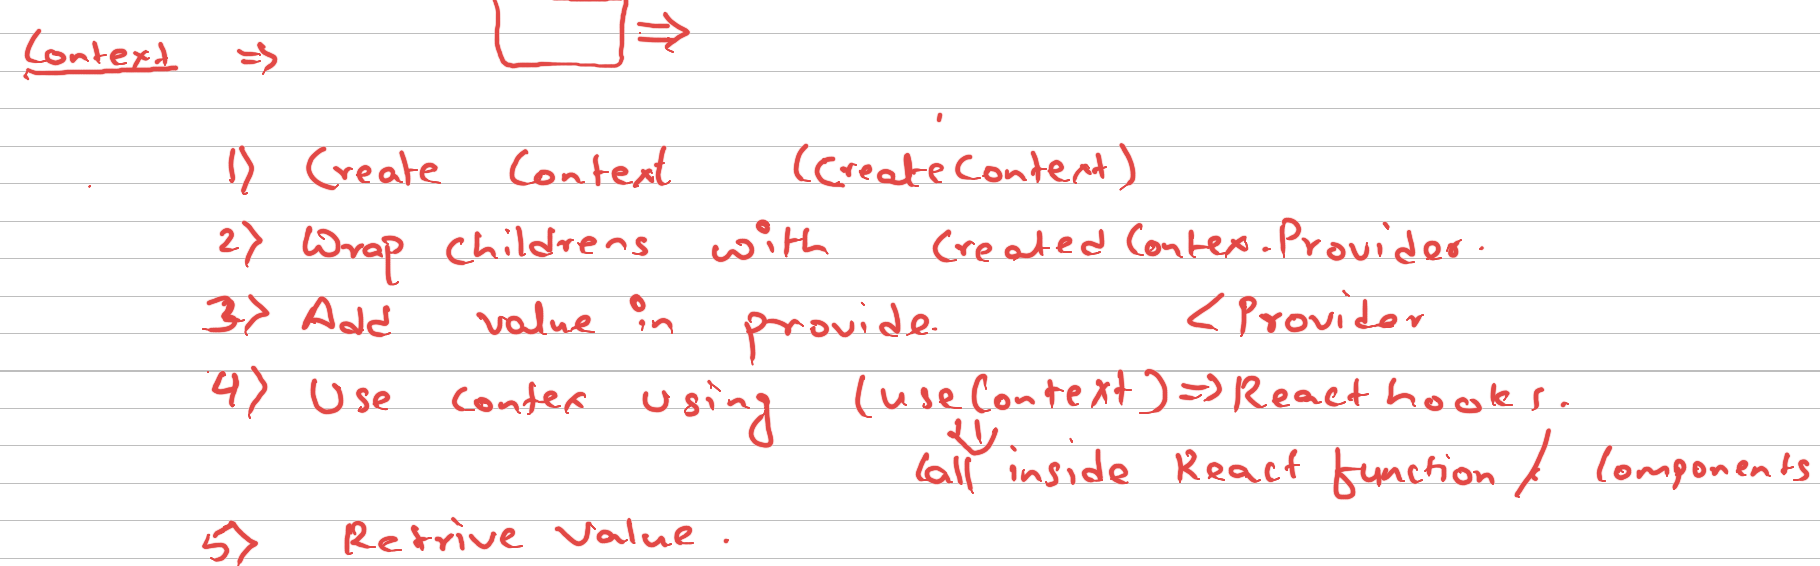 Context =>
1) Create Context (CreateContext)
2) Wrap childrens with Created Contex.Provider.
3) Add value in provide. < Provider
4) Use contex using (useContext) => React hooks.
Call inside React function / Components
5) Retrive value.